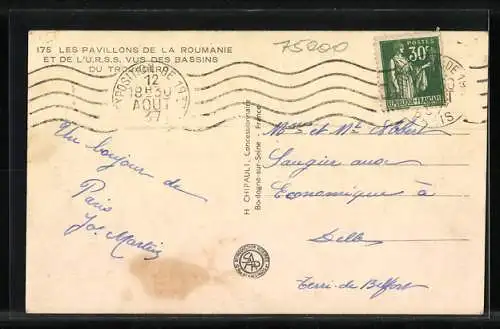 175 LES PAVILLONS DE LA ROUMANIE
ET DE L'U.R.S.S. VUS DES BASSINS
DU TROCADERO
75200
12
18H30
AOUT
37
POSTES
30c
H. CHIPAULT, Concessionnaire
Boulogne-sur-Seine - France
Un bonjour de
Paris
Jos. Martin
et Mr Robert
Saugier aux
Economique à
Delle
Terri-de Belfort